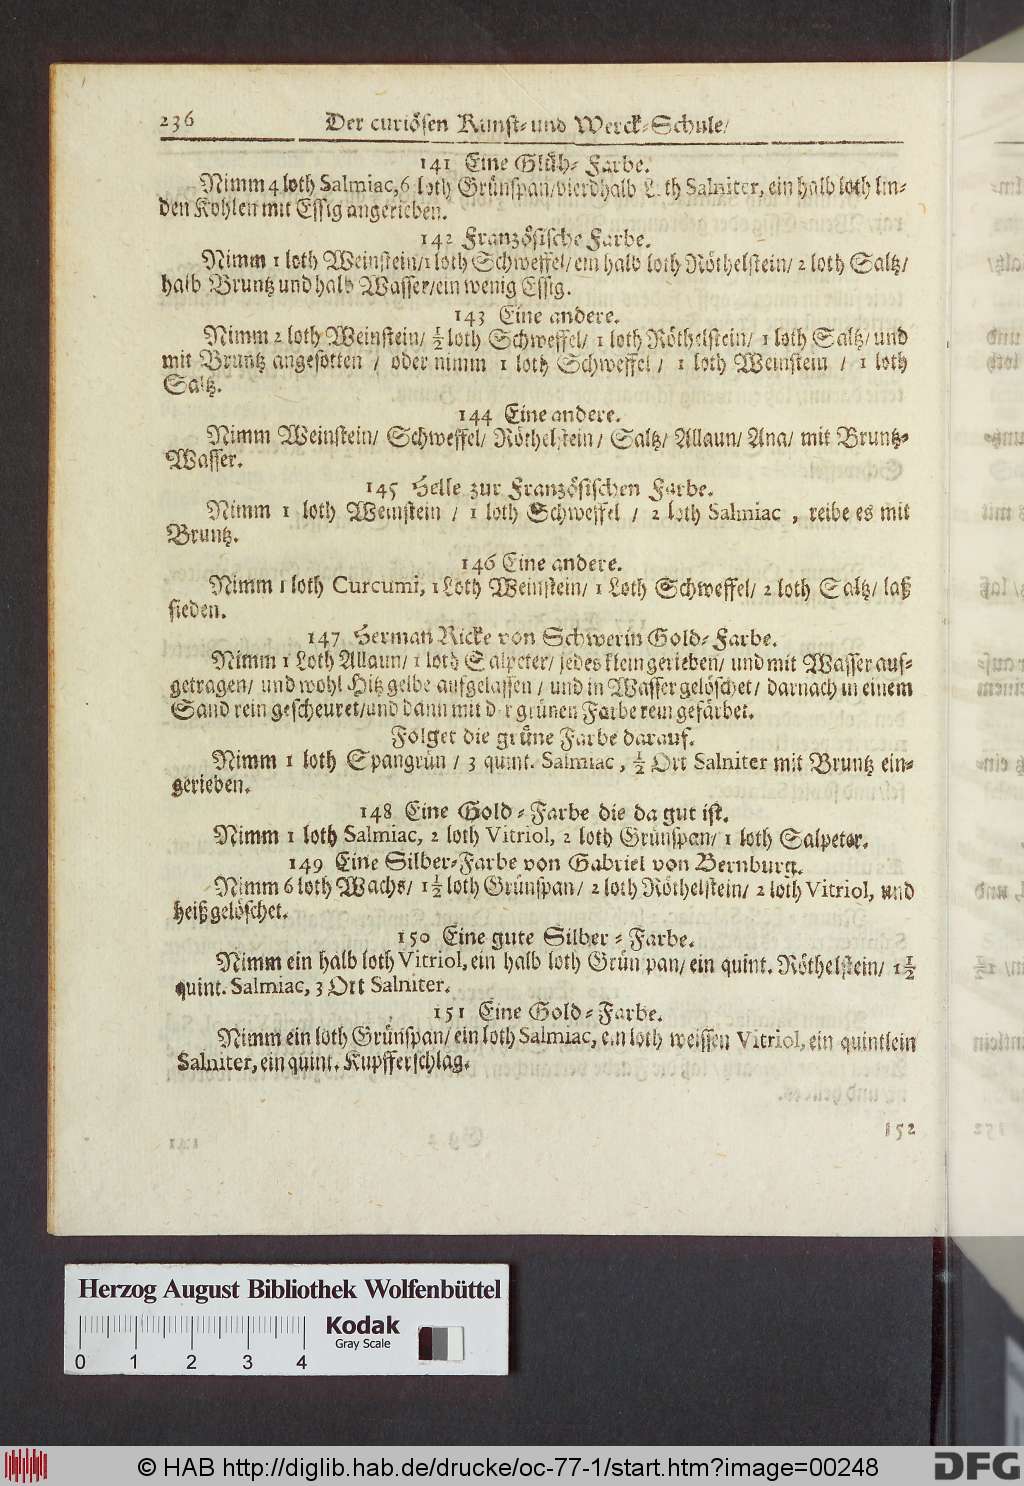 236 Der curiösen Kunst- und Werck-Schule/
141 Eine Glüh-Farbe.
Nimm 4 loth Salmiac, 6 loth Grünspan/ vierdhalb Loth Salniter, ein halb loth lin-
den Kohlen mit Essig angerieben.
142 Französische Farbe.
Nimm 1 loth Weinstein/ 1 loth Schweffel/ ein halb loth Röthelstein/ 2 loth Saltz/
halb Bruntz und halb Wasser/ ein wenig Essig.
143 Eine andere.
Nimm 2 loth Weinstein/ ½ loth Schweffel/ 1 loth Röthelstein/ 1 loth Saltz/ und
mit Bruntz angesotten / oder nimm 1 loth Schweffel / 1 loth Weinstein / 1 loth
Saltz.
144 Eine andere.
Nimm Weinstein/ Schweffel/ Röthelstein/ Saltz/ Allaun/ Ana/ mit Bruntz-
Wasser.
145 Helle zur Französischen Farbe.
Nimm 1 loth Weinstein / 1 loth Schweffel / 2 loth Salmiac , reibe es mit
Bruntz.
146 Eine andere.
Nimm 1 loth Curcumi, 1 Loth Weinstein/ 1 Loth Schweffel/ 2 loth Saltz/ laß
sieden.
147 Herman Ricke von Schwerin Gold-Farbe.
Nimm 1 Loth Allaun/ 1 loth Salpeter/ jedes klein gerieben/ und mit Wasser auf-
getragen/ und wohl Hitz gelbe aufgelassen / und in Wasser gelöschet/ darnach in einem
Sand rein gescheuret/ und dann mit der grünen Farbe rein gefärbet.
Folget die grüne Farbe darauf.
Nimm 1 loth Spangrün / 3 quint. Salmiac , ½ Ort Salniter mit Bruntz ein-
gerieben.
148 Eine Gold-Farbe die da gut ist.
Nimm 1 loth Salmiac, 2 loth Vitriol, 2 loth Grünspan/ 1 loth Salpeter.
149 Eine Silber-Farbe von Gabriel von Bernburg.
Nimm 6 loth Wachs/ 1½ loth Grünspan/ 2 loth Röthelstein/ 2 loth Vitriol, und
heiß gelöschet.
150 Eine gute Silber-Farbe.
Nimm ein halb loth Vitriol, ein halb loth Grünspan/ ein quint. Röthelstein/ 1½
quint. Salmiac, 3 Ort Salniter.
151 Eine Gold-Farbe.
Nimm ein loth Grünspan/ ein loth Salmiac, ein loth weissen Vitriol, ein quintlein
Salniter, ein quint. Kupfferschlag.
152
Herzog August Bibliothek Wolfenbüttel
Kodak
Gray Scale
0 1 2 3 4
© HAB http://diglib.hab.de/drucke/oc-77-1/start.htm?image=00248
DFG